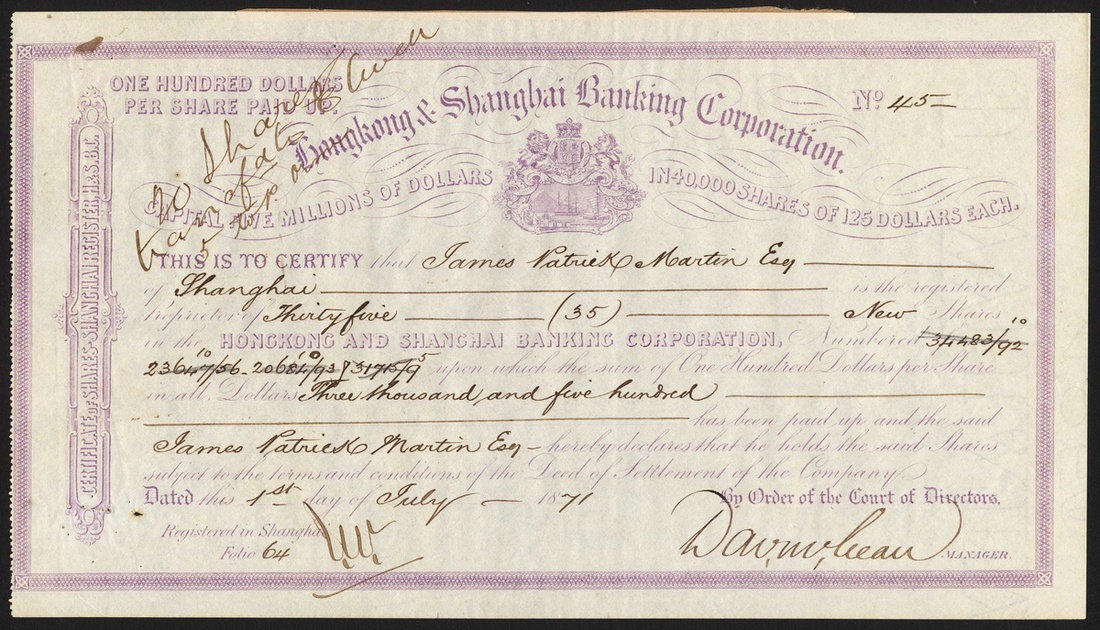 ONE HUNDRED DOLLARS
PER SHARE PAID UP.
20 Shares
Nº 45
Hongkong & Shanghai Banking Corporation.
CAPITAL FIVE MILLIONS OF DOLLARS IN 40,000 SHARES OF 125 DOLLARS EACH.
CERTIFICATE OF SHARES-SHANGHAI REGISTER, H. & S. B. C.
THIS IS TO CERTIFY that James Patrick Martin Esq
of Shanghai is the registered
Proprietor of Thirty five (35) New Shares
in the HONGKONG AND SHANGHAI BANKING CORPORATION, Numbered 34483/92 10
23647/56 10 - 20684/93 10 / 31715/9 5 upon which the sum of One Hundred Dollars per Share
in all Dollars Three thousand and five hundred
has been paid up and the said
James Patrick Martin Esq hereby declares that he holds the said Shares
subject to the terms and conditions of the Deed of Settlement of the Company
Dated this 1st day of July 1871 By Order of the Court of Directors.
Registered in Shanghai
Folio 64
MANAGER.